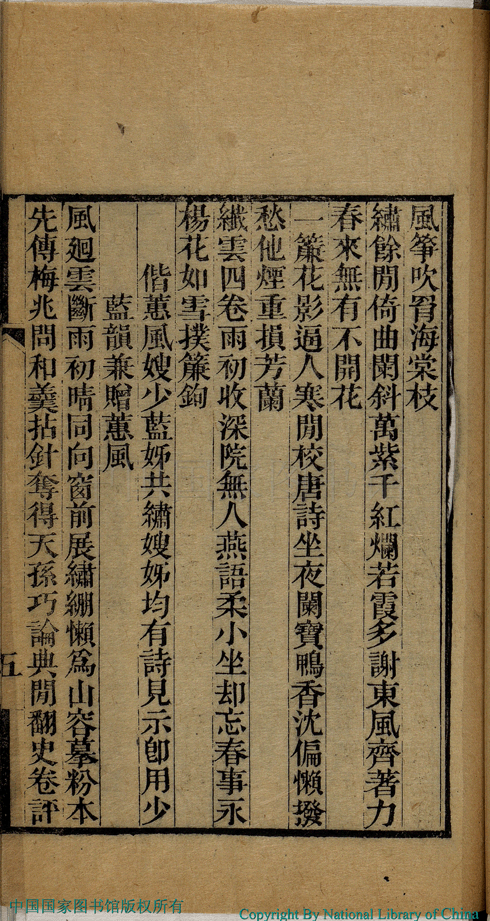 風箏吹罥海棠枝
繡餘閒倚曲闌斜萬紫千紅爛若霞多謝東風齊著力
春來無有不開花
一簾花影逼人寒閒校唐詩坐夜闌寶鴨香沈偏懶撥
愁他煙重損芳蘭
纖雲四卷雨初收深院無人燕語柔小坐却忘春事永
楊花如雪撲簾鉤
偕蕙風嫂少藍姊共繡嫂姊均有詩見示卽用少
藍韻兼贈蕙風
風迴雲斷雨初晴同向窗前展繡繃懶爲山容摹粉本
先傳梅兆問和羹拈針奪得天孫巧論典閒翻史卷評
五
中国国家图书馆版权所有
Copyright By National Library of China